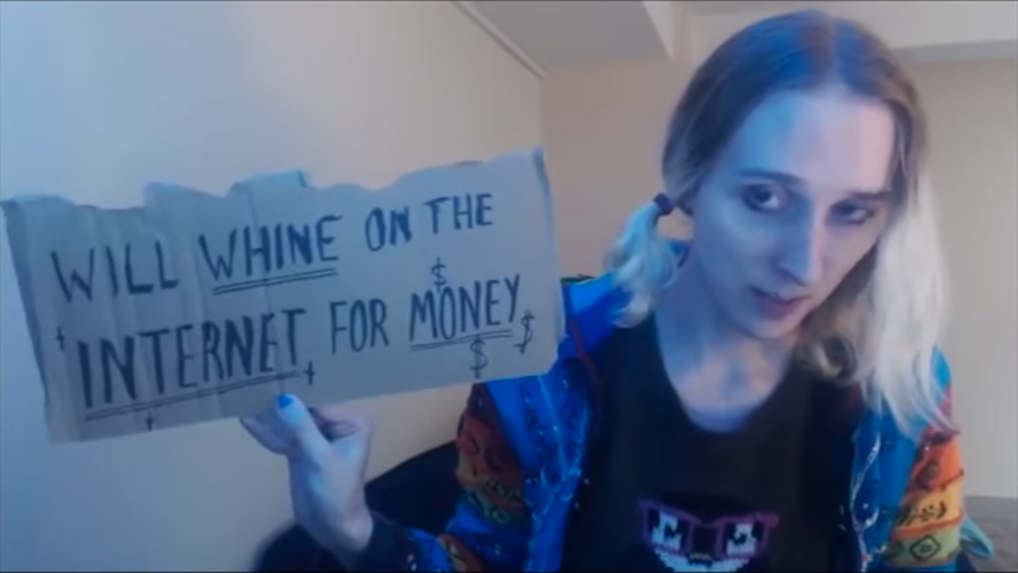 WILL WHINE ON THE
INTERNET FOR MONEY